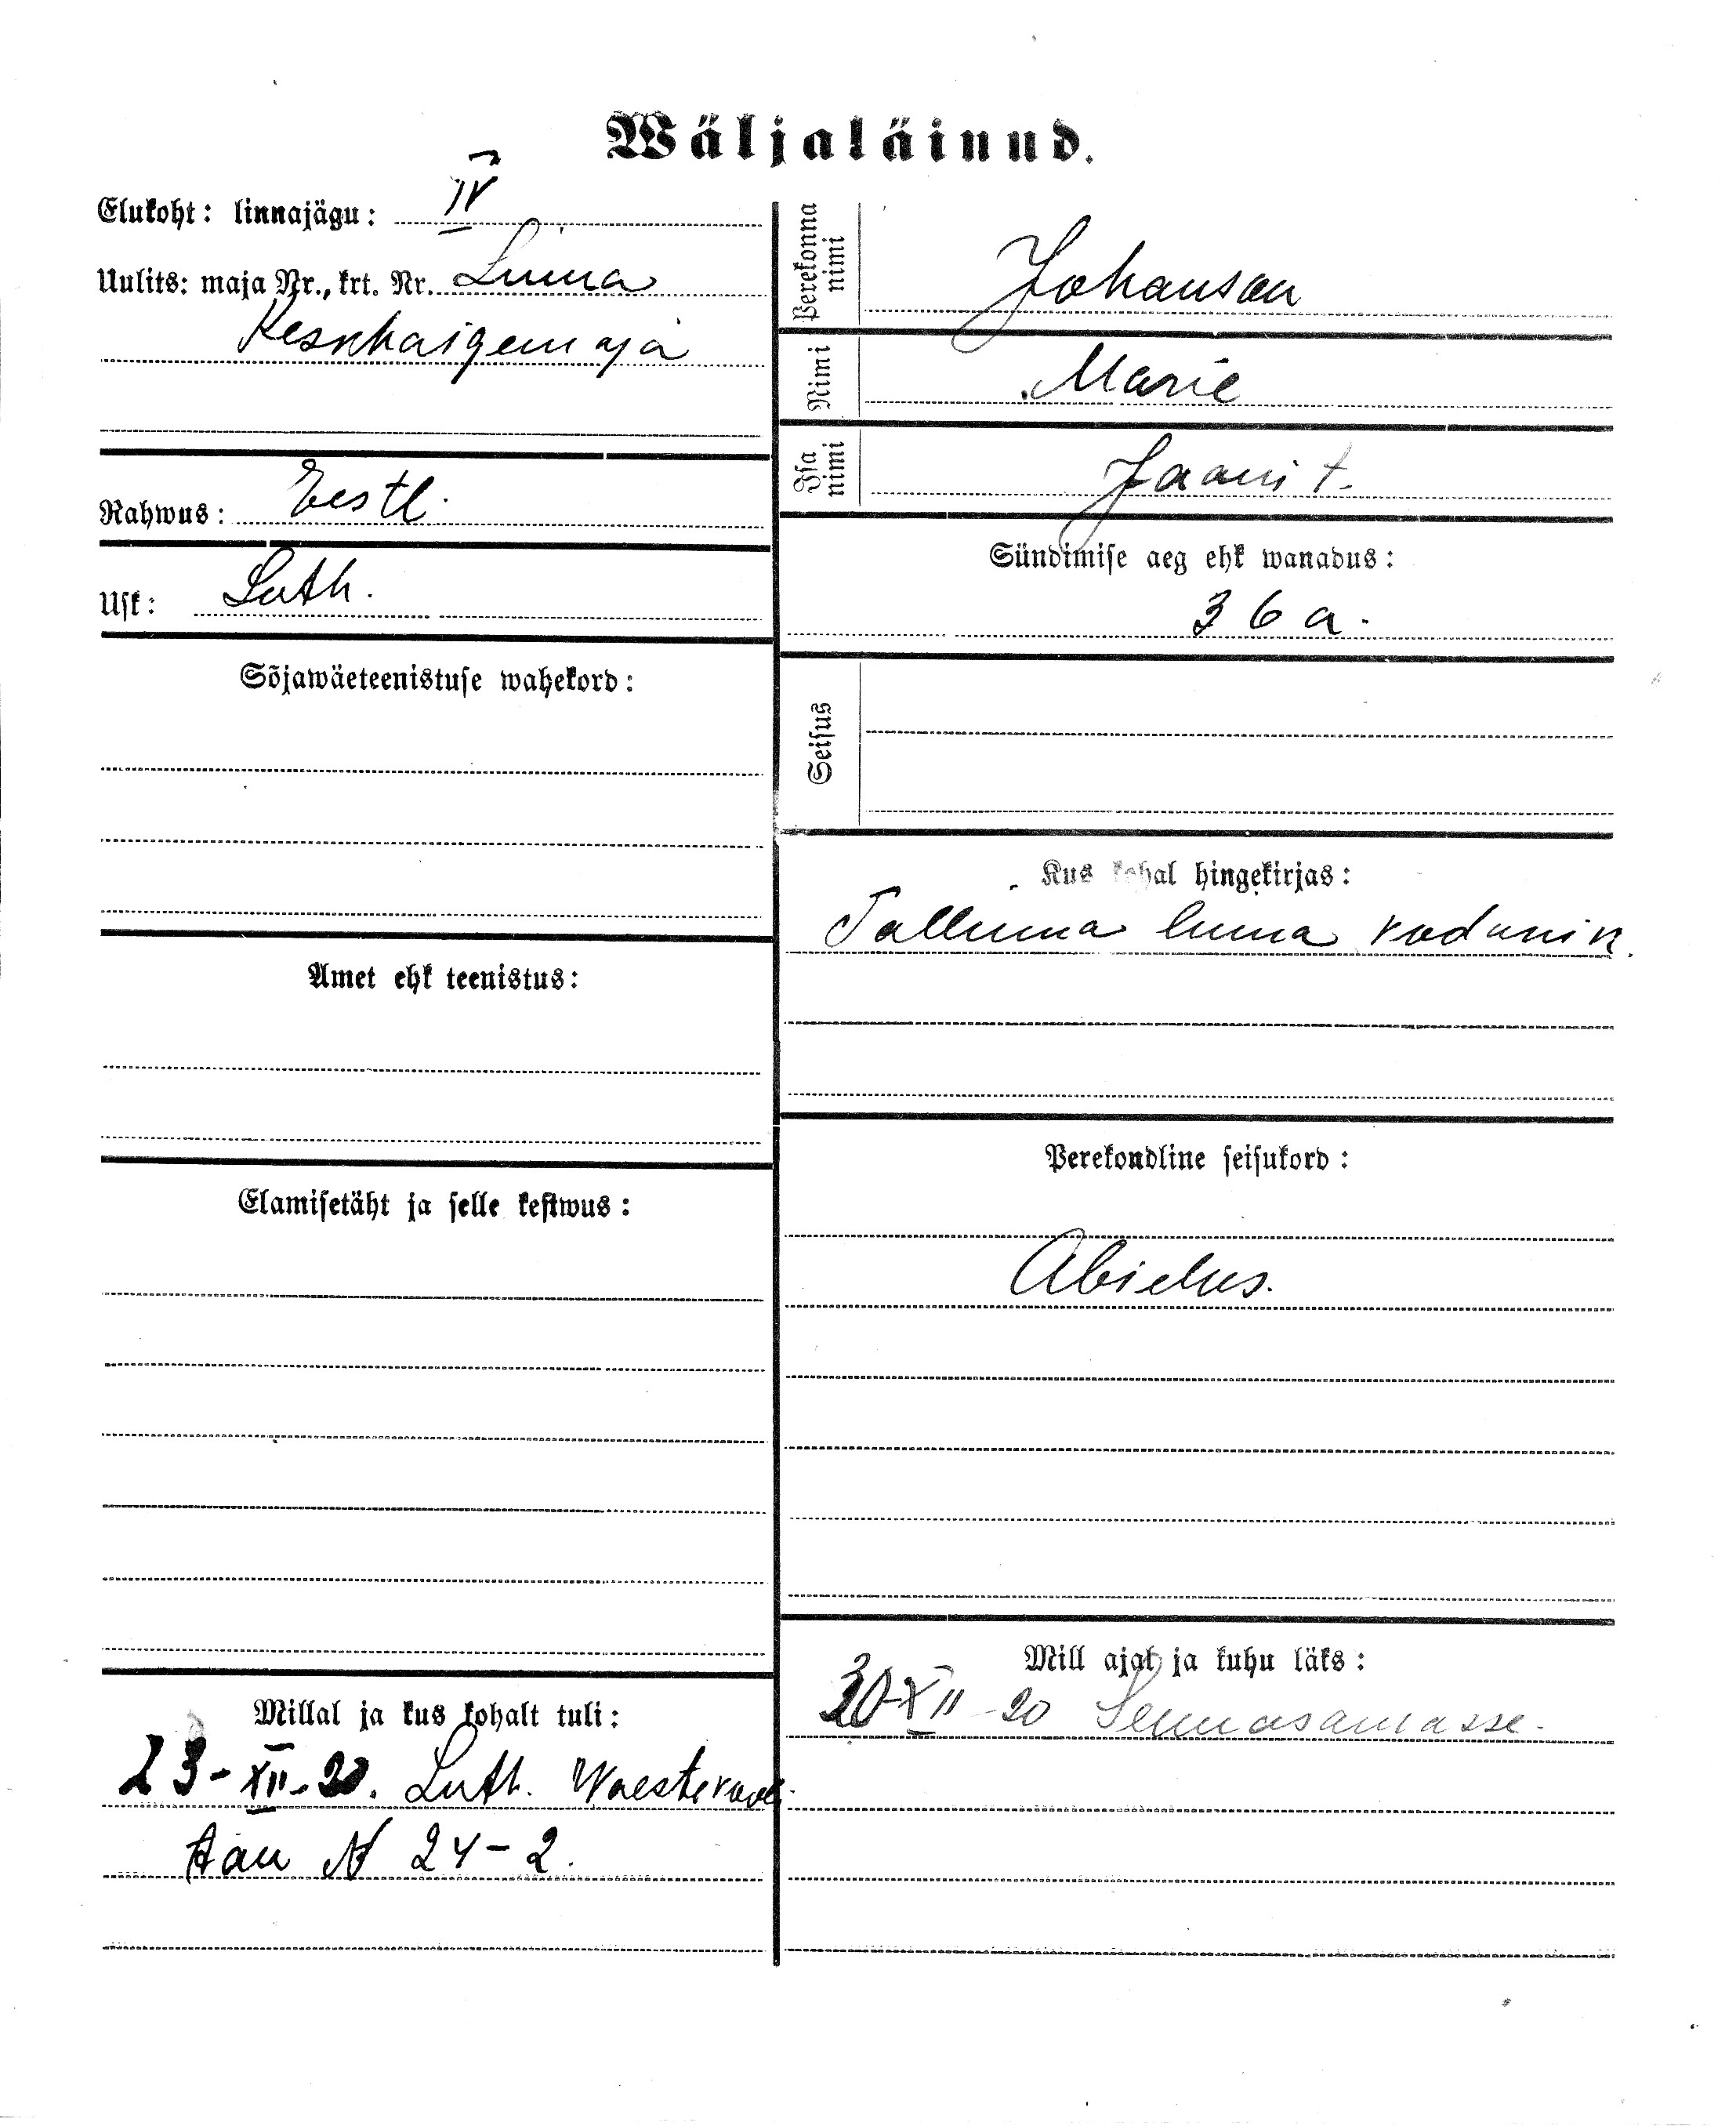 Wäljaläinud.
Elukoht: linnajägu: IV
Uulits: maja Nr., krt. Nr. Linna
Keskhaigemaja
Rahwus: Eestl.
Usk: Luth.
Sõjawäeteenistuse wahekord:
Amet ehk teenistus:
Elamisetäht ja selle kestwus:
Millal ja kus kohalt tuli:
23-XII-20. Luth. Waeste
tän N 24-2.
Perekonna nimi Johanson
Nimi Marie
Isa nimi Jaani t.
Sündimise aeg ehk wanadus:
36 a.
Seisus
Kus kohal hingekirjas:
Tallinna linna kodanik.
Perekondline seisukord:
Abielus.
Mill ajal ja kuhu läks:
30-XII-20 Sennasamasse.